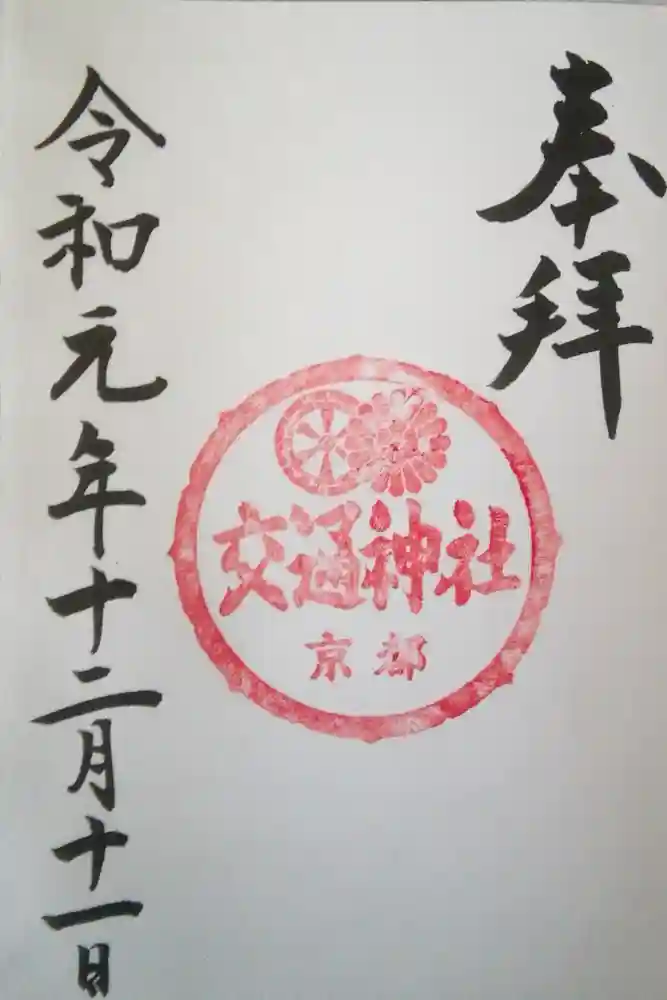 奉拝
交通神社
京都
令和元年十二月十一日